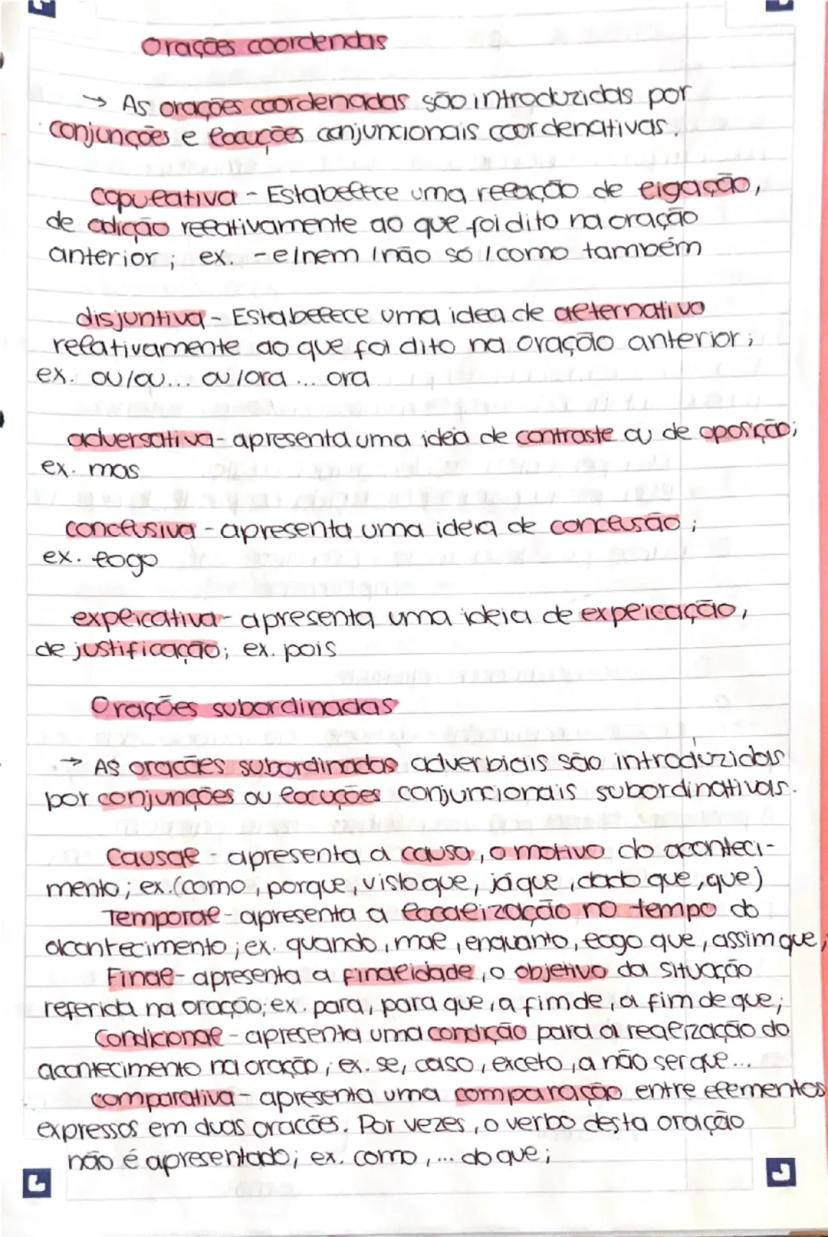 Orações coordendas
→ As orações coordenadas são introduzidas por
conjunções e locuções conjuncionais coordenativas.
copulativa - Estabelece uma relação de ligação,
de adição relativamente ao que foi dito na oração
anterior; ex. - e/nem/não só/como também
disjuntiva - Estabelece uma idea de alternativa
relativamente ao que foi dito na oração anterior;
ex. ou/ou... ou/ora... ora
adversativa - apresenta uma ideia de contraste ou de oposição;
ex. mas
conclusiva - apresenta uma ideia de conclusão;
ex. logo
explicativa - apresenta uma ideia de explicação,
de justificação; ex. pois
Orações subordinadas
→ As oracões subordinadas adverbiais são introduzidas
por conjunções ou locuções conjuncionais subordinativas.
Causal - apresenta a causa, o motivo do aconteci-
mento; ex.(como, porque, visto que, já que, dado que, que)
Temporal - apresenta a localização no tempo do
acontecimento; ex. quando, mal, enquanto, logo que, assim que;
Final - apresenta a finalidade, o objetivo da situação
referida na oração; ex. para, para que, a fim de, a fim de que;
Condicional - apresenta uma condição para a realização do
acontecimento na oração; ex. se, caso, exceto, a não ser que...
comparativa - apresenta uma comparação entre elementos
expressos em duas oracões. Por vezes, o verbo desta oração
não é apresentado; ex. como, ... do que;